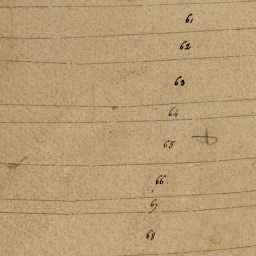 61
62
63
64
65
66
67
68